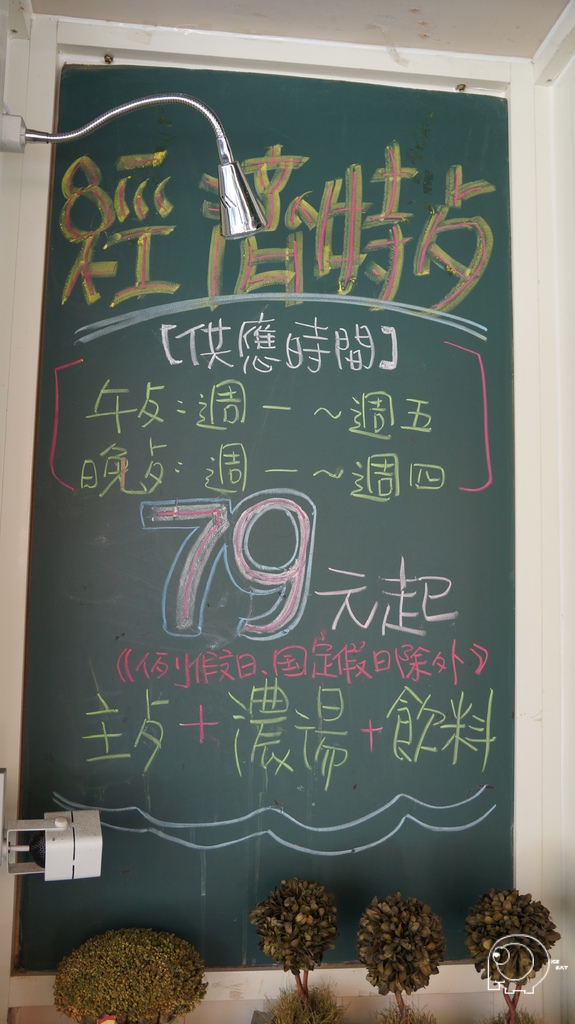 經濟時歺
【供應時間】
午歺：週一～週五
晚歺：週一～週四
79元起
《例假日、国定假日除外》
主歺+濃湯+飲料